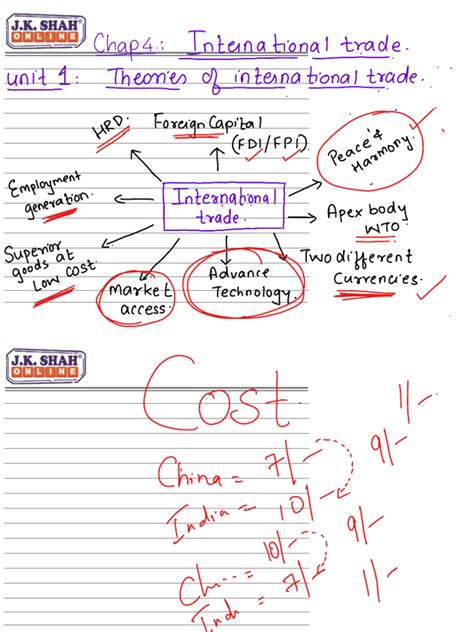 J.K. SHAH®
ONLINE
Chap 4.: International trade.
unit 1: Theories of international trade.
HRD.
Foreign Capital
(FDI/FPI)
Peace & Harmony
Employment
generation.
International
trade.
Apex body
WTO
Superior
goods at
Low cost.
Market
access.
Advance
Technology.
Two different
Currencies.
J.K. SHAH®
ONLINE
Cost.
1/-
China = 7/-
9/-
India = 10/-
10/-
9/-
Ch... =
7/-
1/-
Ind =